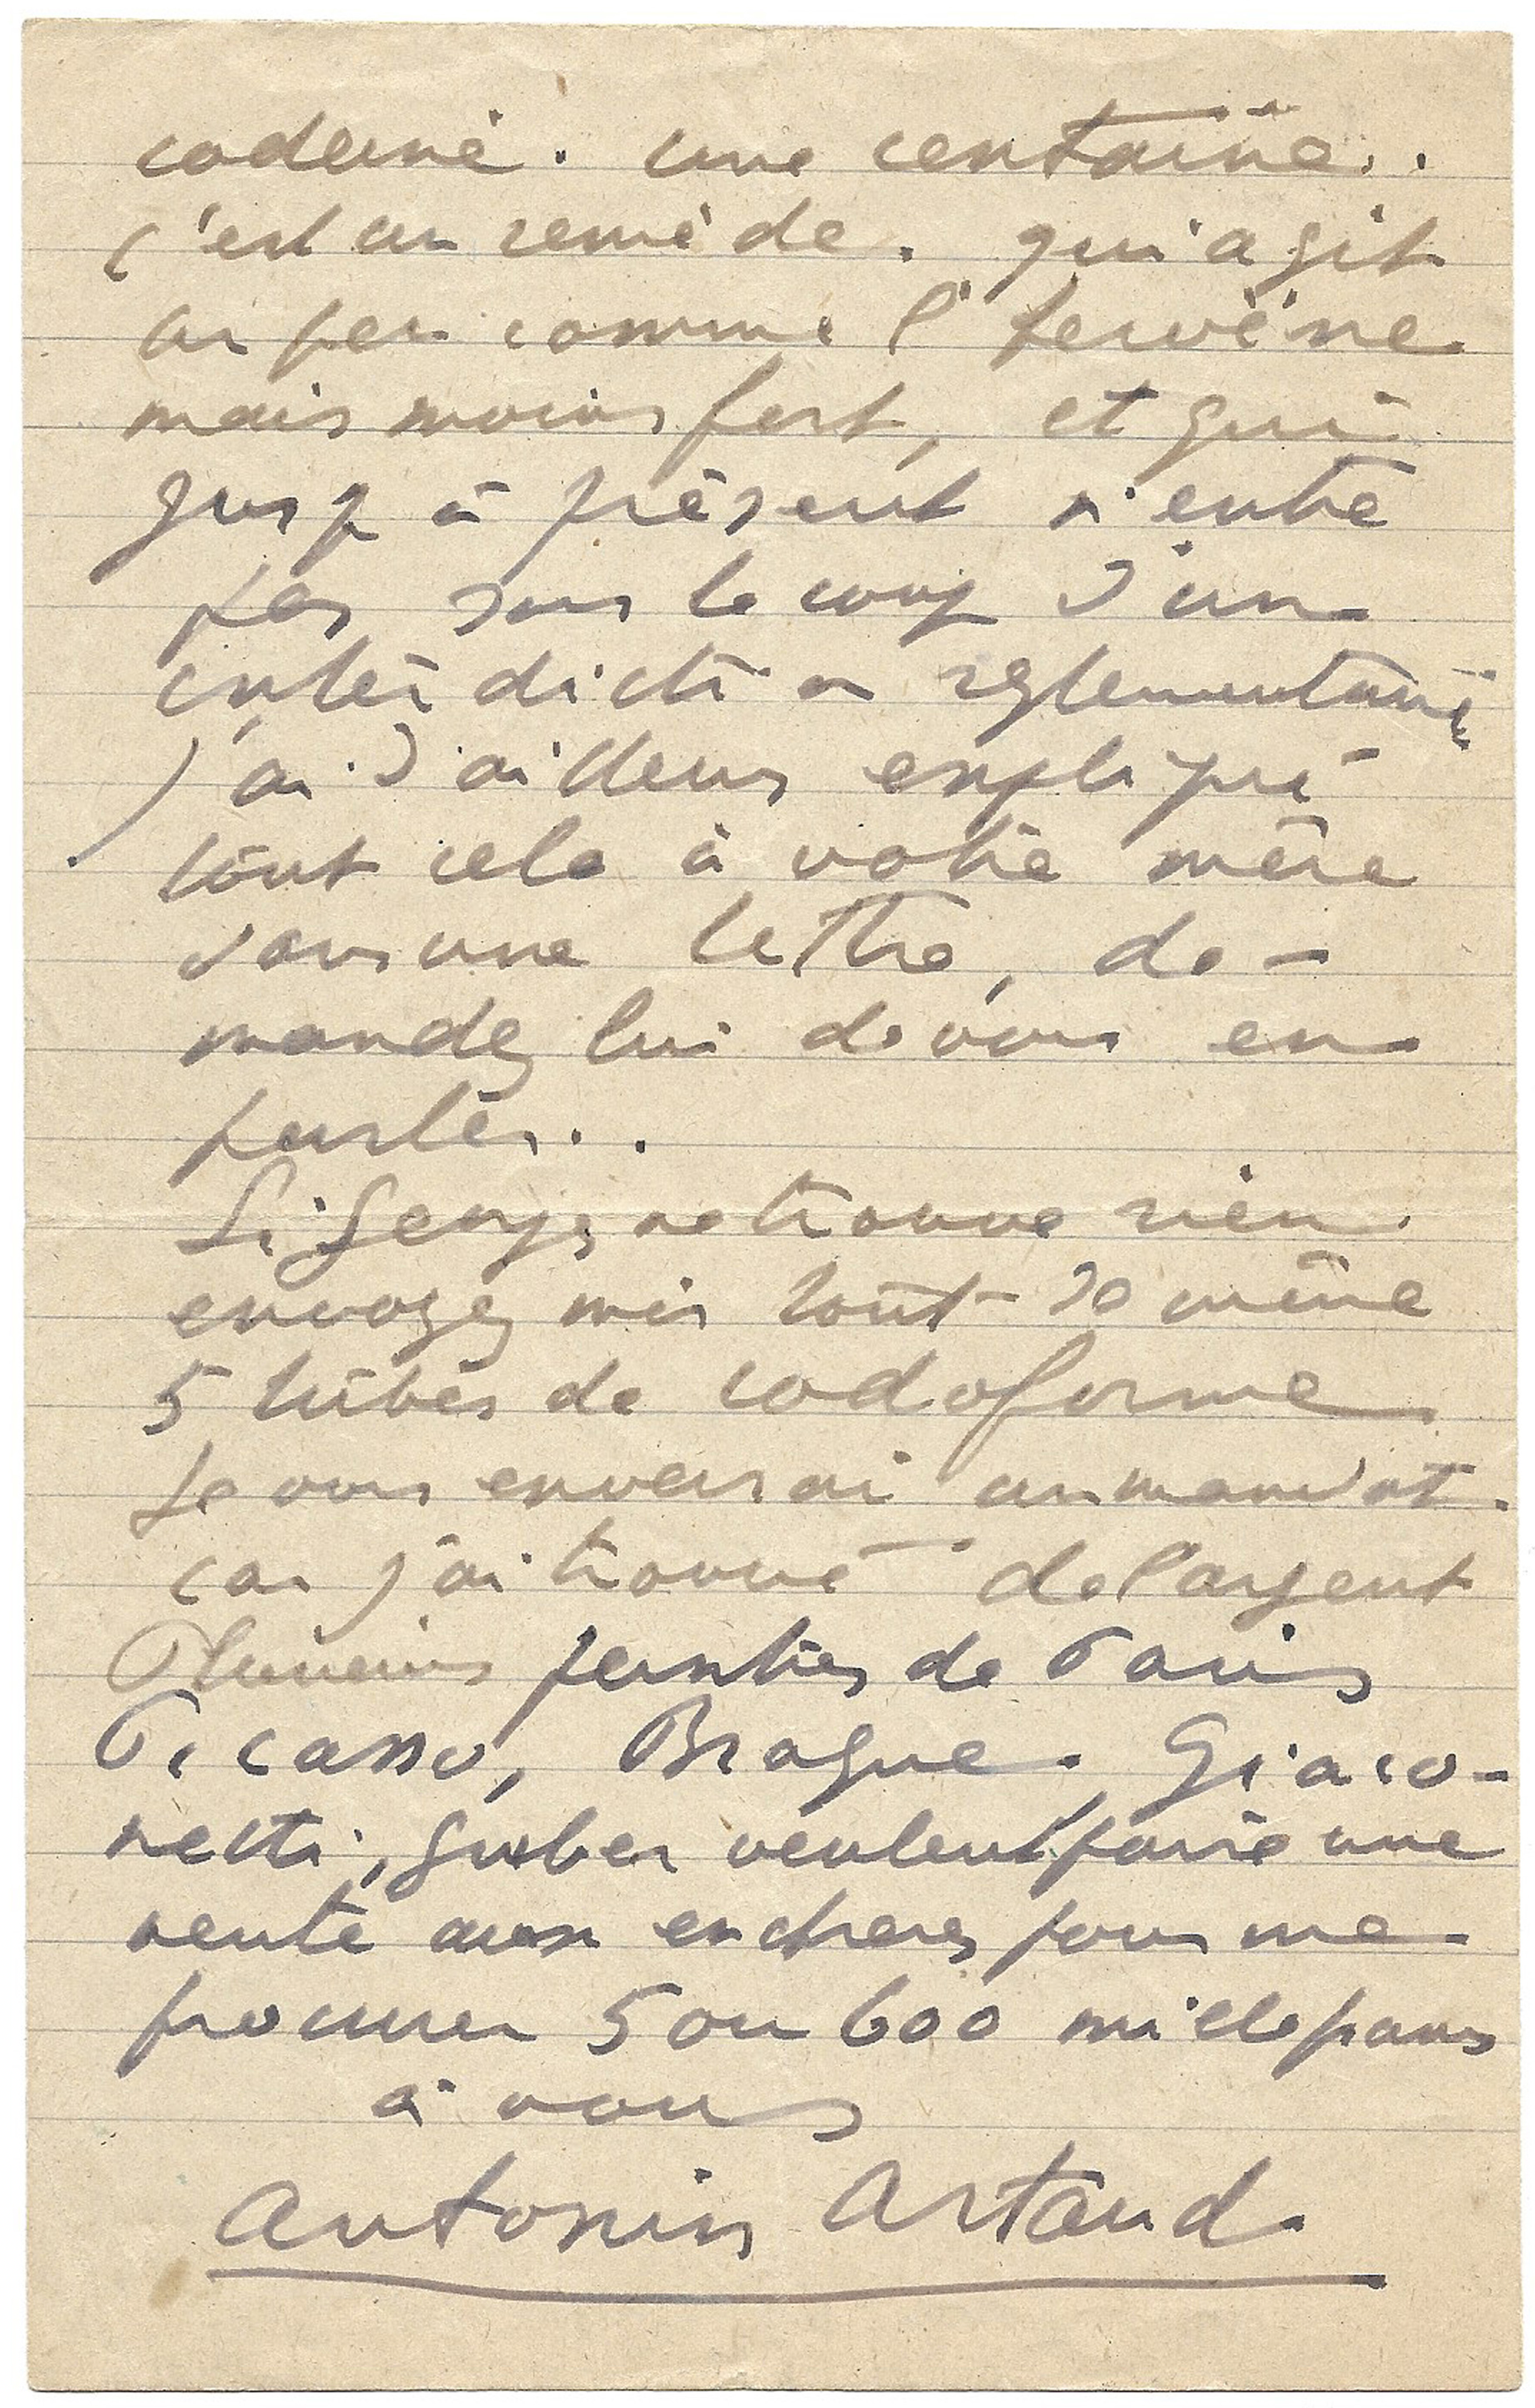 codeine. une centaine..
c'est un remède. qui agit
un peu comme l'
mais moins fort, et qui
jusq à présent n'entre
pas sous le coup d'une
interdiction reglementaire
j'ai d'ailleurs expliqué
tout cela à votre mère
dans une lettre, de-
mandez lui de vous en
parler..
Si Georges ne trouve rien.
envoyez moi tout de même
5 tubes de codoforme
Je vous enverrai un mandat.
car j'ai trouvé de l'argent
Plusieurs peintres de Paris
Picasso, Braque, Giaco-
metti, Gruber veulent faire une
vente aux encheres pour me
procurer 5 ou 600 mille francs
à vous
Antonin Artaud